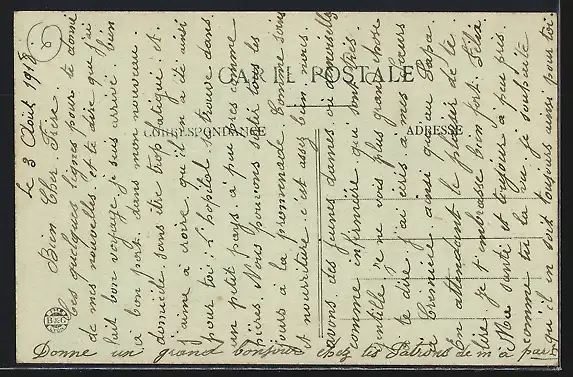 CARTE POSTALE
CORRESPONDANCE
ADRESSE
Le 3 Août 1918
Bien Cher Frère
Ces quelques lignes pour te donné
de mes nouvelles et te dire que j'ai
fait bon voyage je suis arrivé bien
à bon port dans mon nouveau
domicile sans être trop fatigué et
j'aime à croire qu'il en a été aussi
pour toi. L'hopital se trouve dans
un ptit pays à peu près comme
Nous pouvons sortir tous les
jours à la promenade. Comme soin
et nourriture c'est assez bien nous
avons des jeunes dames ou demoiselles
comme infirmière qui sont très
gentille je ne vois plus grand chose
à te dire j'ai écris à mes sœurs
ainsi qu'au Papa.
En attendant le plaisir de te
lire je t'embrasse bien fort.
Ma santé est toujour à peu près
comme tu la vu je souhaite
qu'il en soit toujours ainsi pour toi.
Donne un grand bonjour chez tes Patrons de m'a part